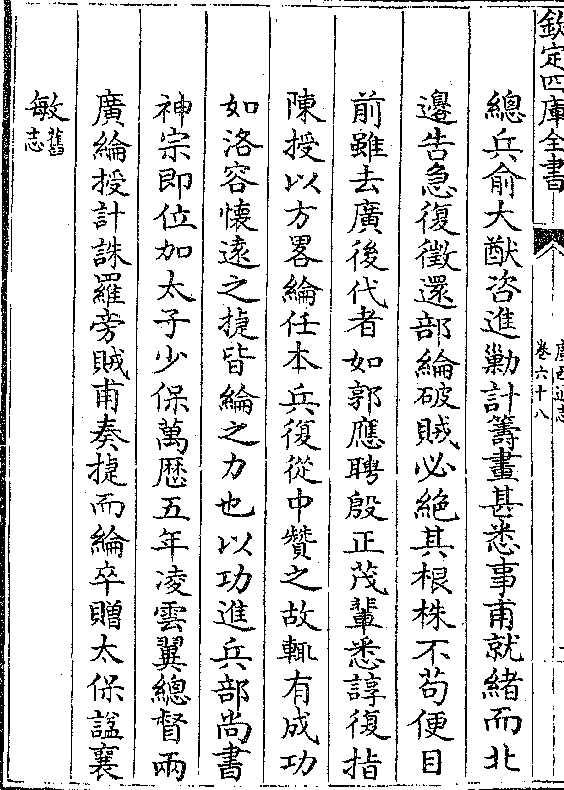 欽定四庫全書
廣西通志
卷六十八
總兵俞大猷咨進勦計籌畫甚悉事甫就緒而北
邊告急復徵還部綸破賊必絶其根株不茍便目
前雖去廣後代者如郭應聘殷正茂輩悉諄復指
陳授以方畧綸任本兵復從中贊之故輒有成功
如洛容懷遠之捷皆綸之力也以功進兵部尚書
神宗即位加太子少保萬歴五年凌雲翼總督兩
廣綸授計誅羅旁賊甫奏捷而綸卒贈太保諡襄
敏舊志